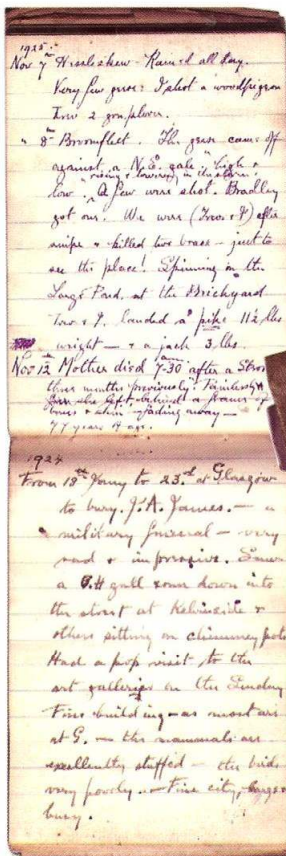 1925.
Nov 7th Rained all day.
Very few geese. I shot a woodpigeon
2 g. plover.
" 8th Broomfleet. The geese came off
against a N.E. gale high &
rising & lowering in the storm
low. A few were shot. Bradley
got one. We were after
snipe & killed two brace - just to
see the place! Spinning in the
Large Pond at the Brickyard
& I. landed a pike 11½ lbs
weight - & a jack 3 lbs.
Nov 12 Mother died 7-30 am after a
three months previously.
left behind a frame of
bones & skin - fading away -
77 years of age.
1924
From 18th to 23rd at Glasgow
to bury J.A. James. - a
military funeral - very
sad & impressive. Saw
a B.H gull down into
the street at Kelvinside &
others sitting on chimney pots
Had a pop visit to the
art galleries on the Sunday
Fine building - as most are
at G. - the mammals are
excellently stuffed - the birds
very poorly. - Fine city, large &
busy.